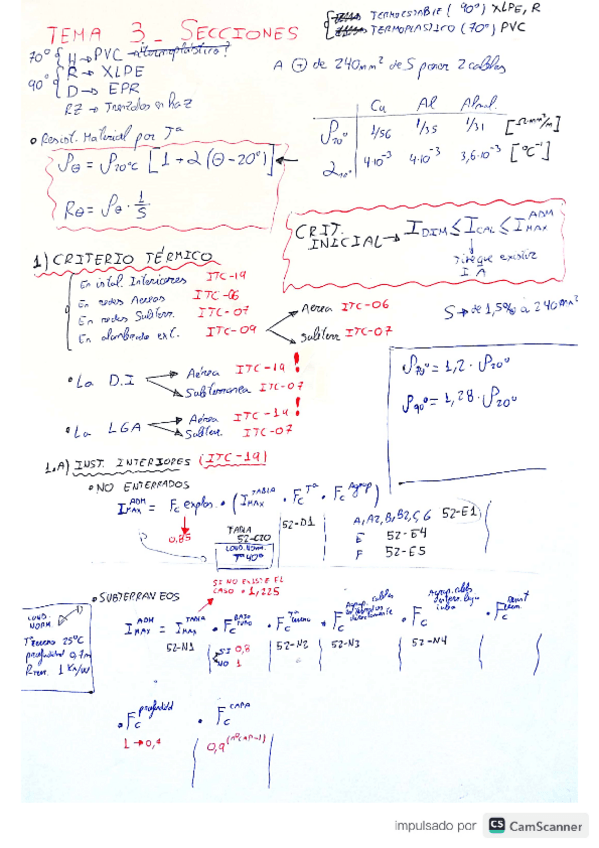 TEMA 3_ SECCIONES
TERMOESTABLE (90°) XLPE, R
TERMOPLASTICO (70°) PVC
70° { H → PVC
90° { R → XLPE
D → EPR
RZ → Trenzados en haz
A ⊕ de 240mm² de S poner 2 cables
Cu Al Almel.
ρ20° 1/56 1/35 1/31 [Ω·mm²/m]
α20° 4·10⁻³ 4·10⁻³ 3,6·10⁻³ [°C⁻¹]
• Resist. Material por Tª
ρθ = ρ20°C [1 + α (θ - 20°)] ←
Rθ = ρθ · 1/S
CRIT. INICIAL → I DIM ≤ I CAL ≤ I MAX ADM
Tiene que existir
I A
1) CRITERIO TÉRMICO
En instal. Interiores ITC-19
En redes Aereas ITC-06
En redes Subterr. ITC-07
En alumbrado ext. ITC-09
Aerea ITC-06
Subterr ITC-07
S → de 1,5 a 240mm²
• La D.I
Aérea ITC-19 !
Subterranea ITC-07
• La LGA
Aérea ITC-14 !
Subterr. ITC-07
ρ70° = 1,2 · ρ20°
ρ90° = 1,28 · ρ20°
1.A) INST. INTERIORES (ITC-19)
• NO ENTERRADOS
I MAX ADM = Fc explos. · (I MAX TABLA · Fc Tª · Fc Agrup)
0,85
TABLA 52-C20
COND. NORM. Tª 40°
52-D1
A, A2, B, B2, C, G 52-E1
E 52-E4
F 52-E5
SI NO EXISTE EL CASO · 1,225
• SUBTERRANEOS
COND. NORM.
Tterreno 25°C
profundidad 0,7m
Rterr. 1 K·m/W
I MAX ADM = I MAX TABLA · Fc BAJO TUBO · Fc Tª terreno · Fc Agrup. cables enterrados directamente · Fc Agrup. cables enterr. bajo tubo · Fc
52-N1
SI 0,8
NO 1
52-N2
52-N3
52-N4
• Fc profundidad · Fc CAPA
0,9
impulsado por CS CamScanner